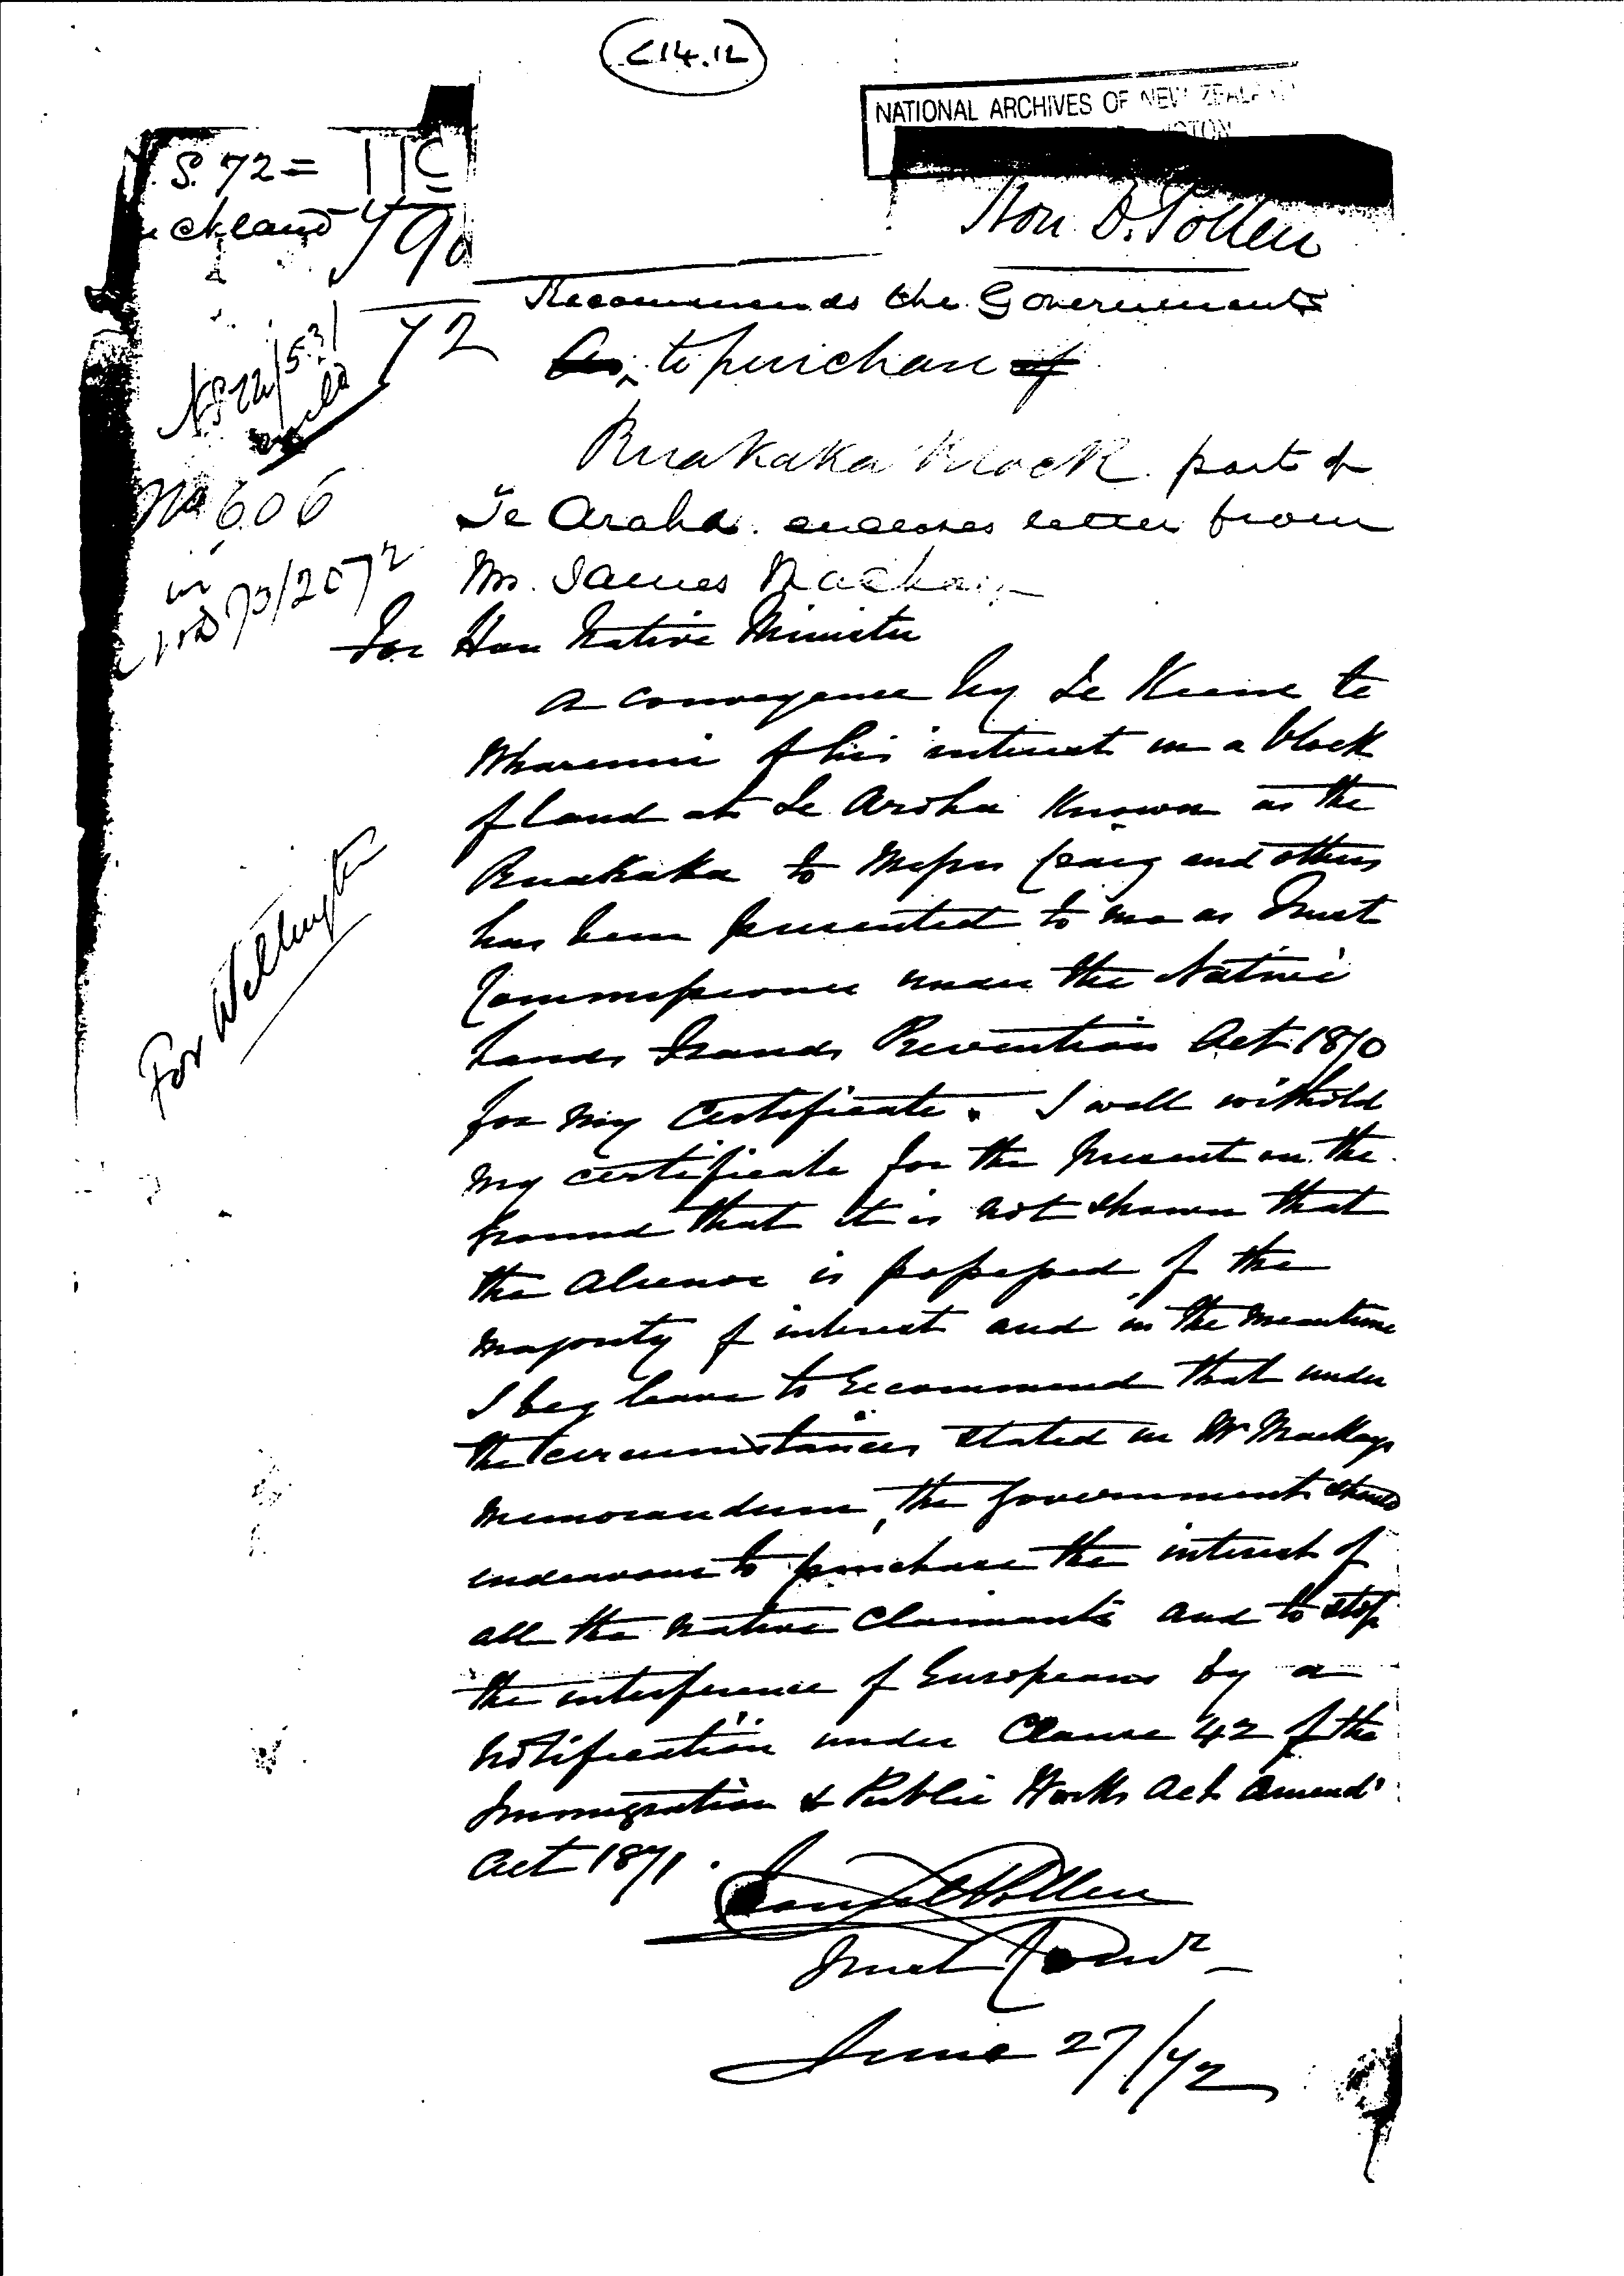 C14.12
NATIONAL ARCHIVES OF NEW ZEALAND
S. 72=
ckland
790
72
Hon. D. Pollen
Recommends the Government
to purchase
Ruakaka Block part of
Te Aroha. encloses letter from
Mr. James Mackay
No 606
in
73/2072
For Wellington
For Hon Native Minister
A conveyance by Te Keene te
Wharenui of his interest in a block
of land at Te Aroha known as the
Ruakaka to Messrs Craig and others
has been presented to me as Trust
Commissioner under the Native
Lands Frauds Prevention Act 1870
for my Certificate. I will withold
my certificate for the present on the
ground that it is not shown that
the alienor is possessed of the
majority of interest and in the meantime
I beg leave to recommend that under
the circumstances stated in Mr Mackays
memorandum, the Government should
endeavour to purchase the interest of
all the native Claimants and to stop
the interference of Europeans by a
notification under Clause 42 of the
Immigration & Public Works Act Amendt
Act 1871.
Daniel Pollen
Trust Comr
June 27/72